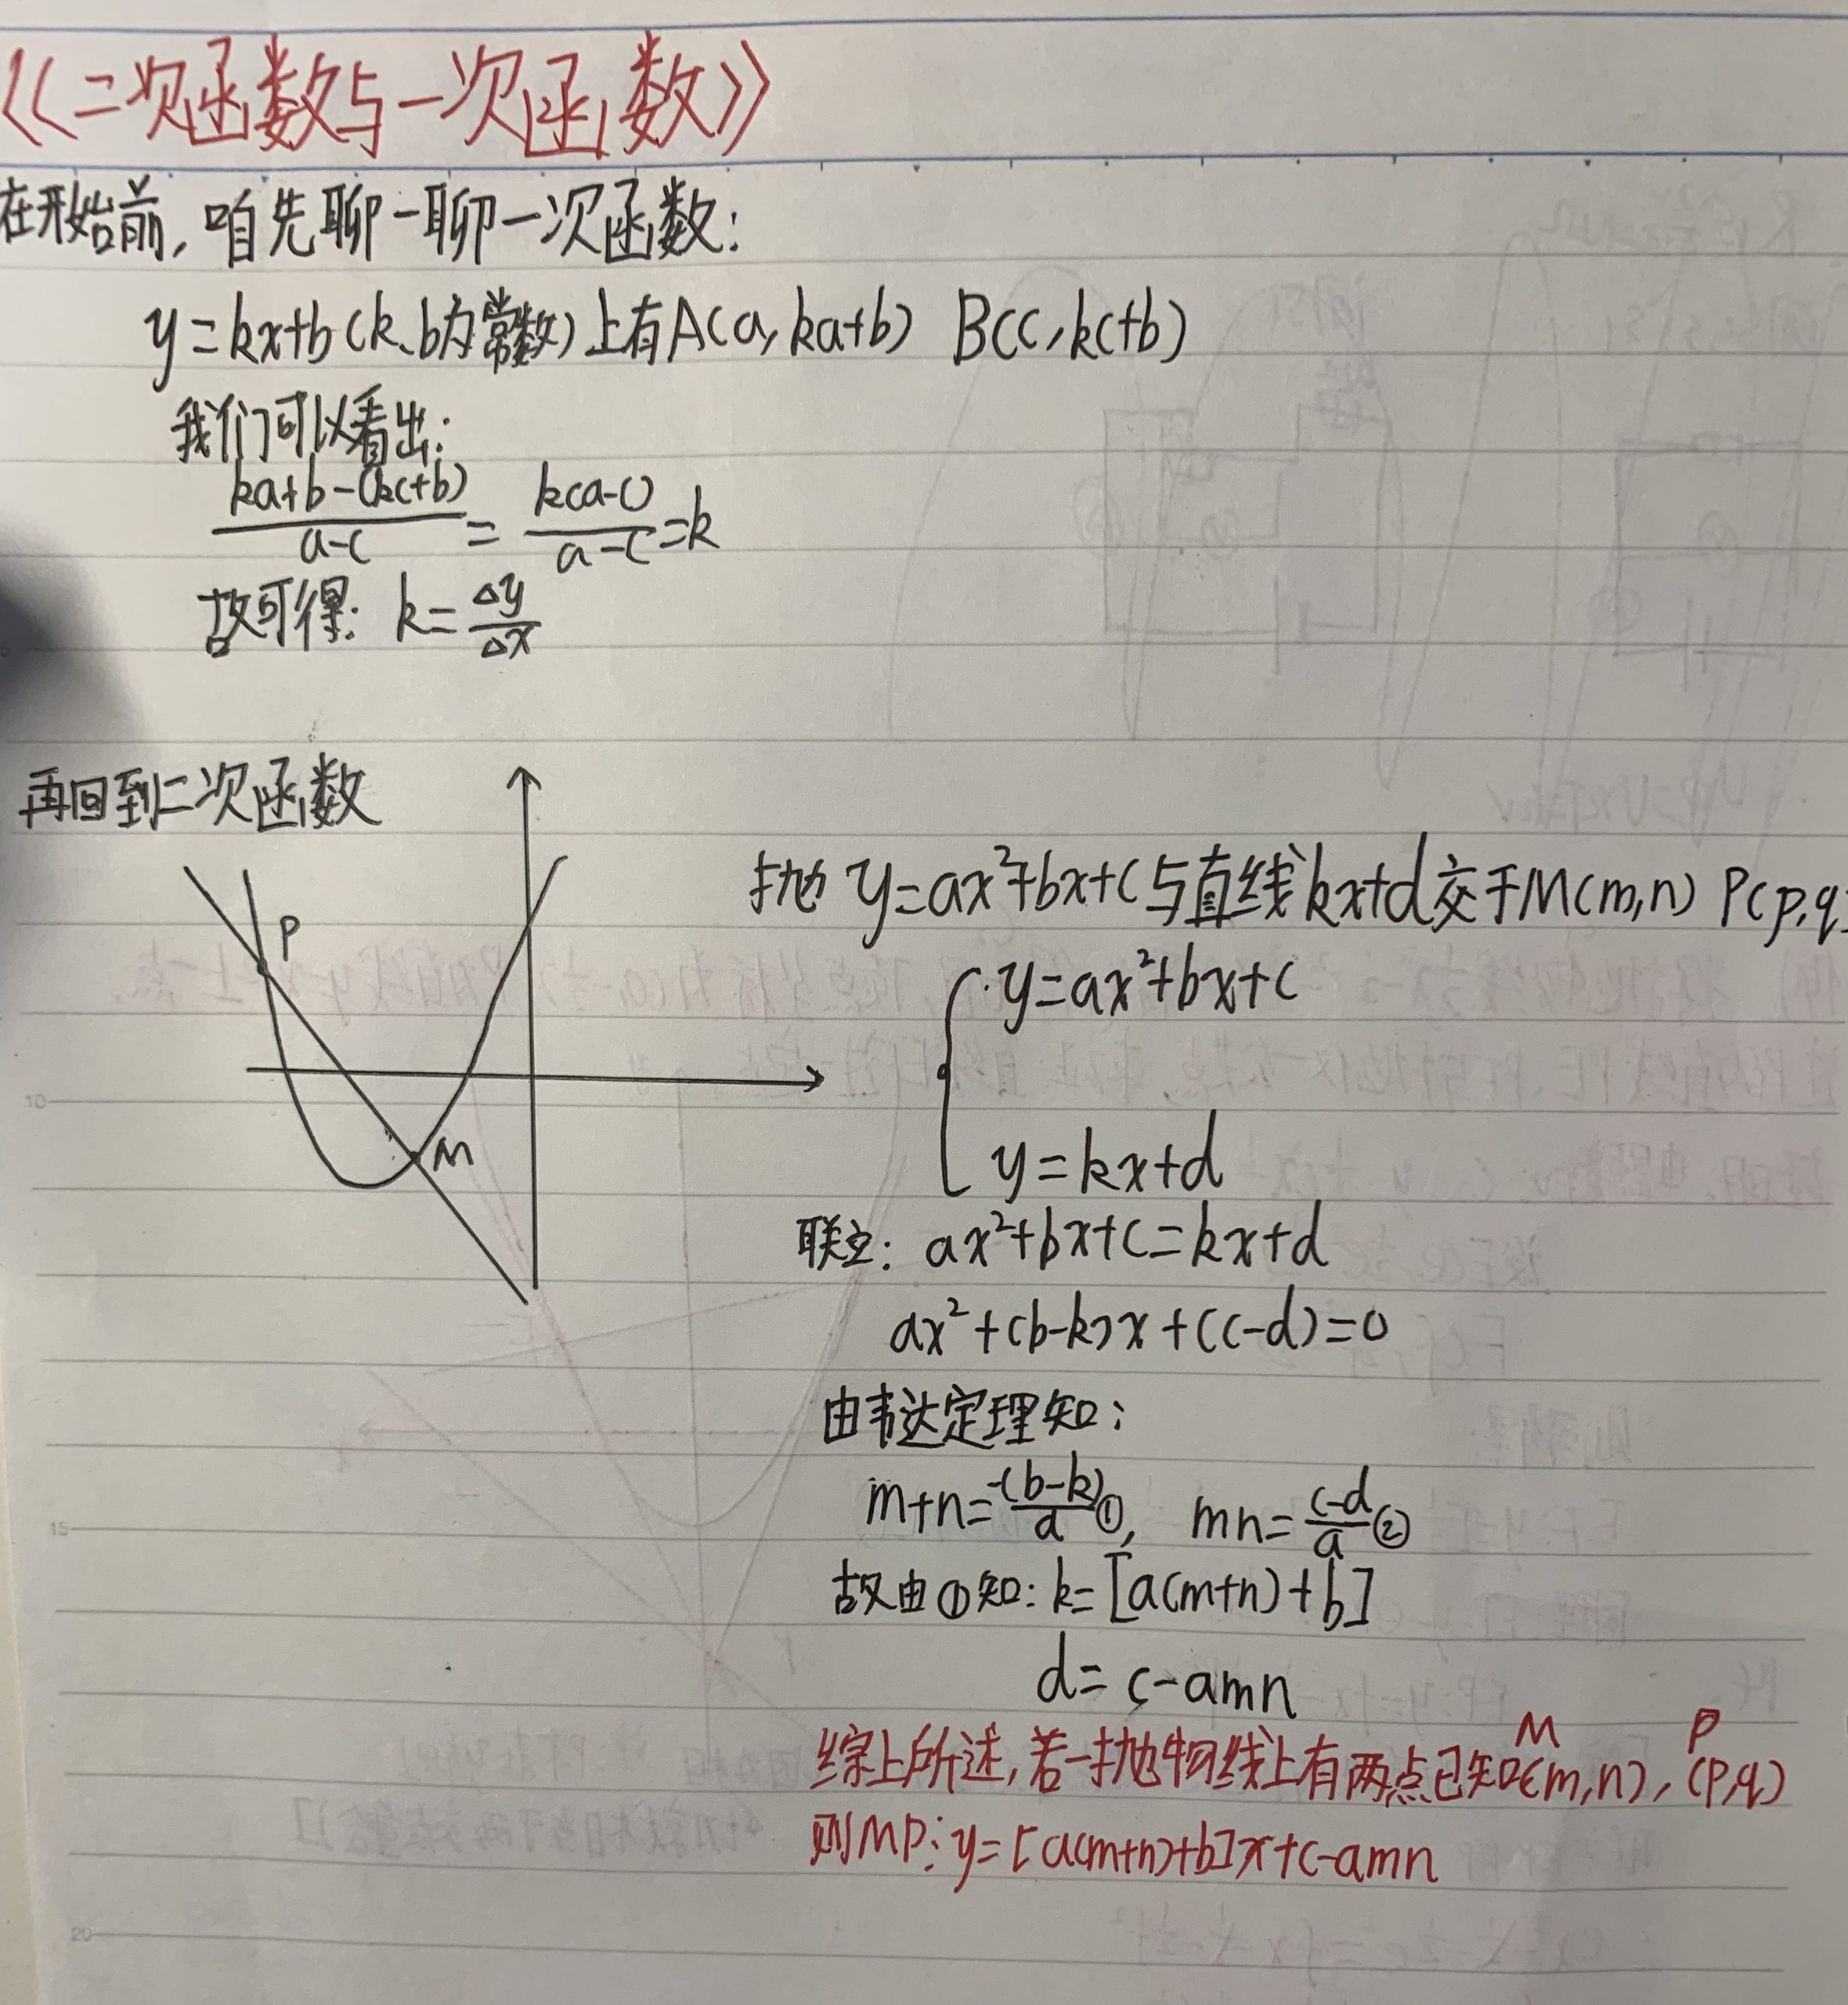 《二次函数与一次函数》
在开始前,咱先聊一聊一次函数:
y=kx+b(k、b为常数)上有A(a,ka+b) B(c,kc+b)
我们可以看出:
ka+b-(kc+b)/a-c = k(a-c)/a-c = k
故可得: k=△y/△x
再回到二次函数
P
M
抛 y=ax²+bx+c与直线kx+d交于M(m,n) P(p,q
y=ax²+bx+c
y=kx+d
联立: ax²+bx+c=kx+d
ax²+(b-k)x+(c-d)=0
由韦达定理知:
m+n=-(b-k)/a ①, mn=c-d/a ②
故由①知: k=[a(m+n)+b]
d=c-amn
综上所述,若一抛物线上有两点已知M(m,n), P(p,q)
则MP: y=[a(m+n)+b]x+c-amn
10
15
20